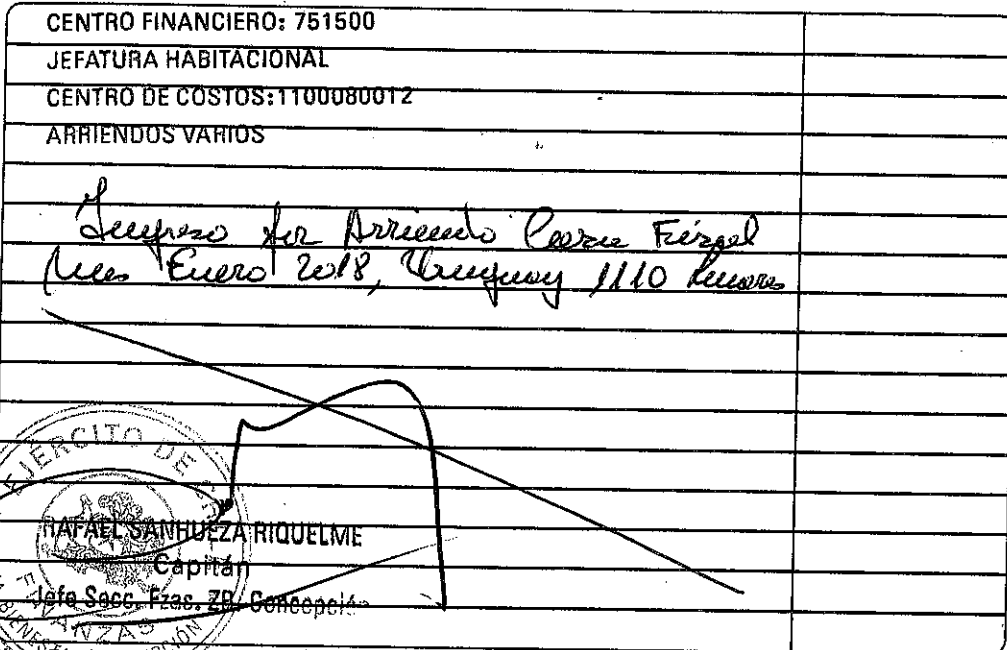 CENTRO FINANCIERO: 751500
JEFATURA HABITACIONAL
CENTRO DE COSTOS:1100080012
ARRIENDOS VARIOS
Ingreso por Arriendo Casa Fiscal
Mes Enero 2018, Uruguay 1110 Linares
EJÉRCITO DE
RAFAEL SANHUEZA RIQUELME
Capitán
Jefe Secc. Fzas. ZB. Concepción
FINANZAS